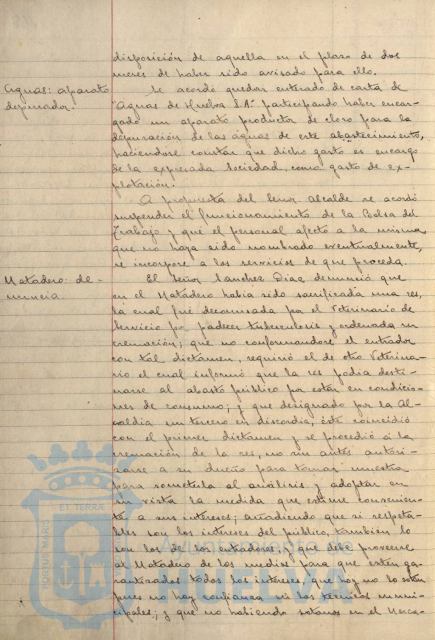 disposición de aquella en el plazo de dos
meses de haber sido avisado para ello.
Aguas: aparato
depurador.
Se acordó quedar enterado de carta de
"Aguas de Huelva S.A." participando haber encar-
gado un aparato productor de cloro para la
depuración de las aguas de este abastecimiento,
haciendose constar que dicho gasto es encargo
de la expresada Sociedad, como gasto de ex-
plotación.
A propuesta del Señor Alcalde se acordó
suspender el funcionamiento de la Bolsa del
Trabajo y que el personal afecto a la misma
que no haya sido nombrado eventualmente,
se incorpore a los servicios de que proceda.
Matadero: de-
nuncia.
El Señor Sanchez Diaz denunció que
en el Matadero habia sido sacrificada una res,
la cual fué decomisada por el Veterinario de
servicio por padecer tuberculosis y ordenada su
cremación; que no conformandose el entrador
con tal dictámen, requirió el de otro Veterina-
rio el cual informó que la res podia desti-
narse al abasto público por estar en condicio-
nes de consumo; y que designado por la Al-
caldia un tercero en discordia, éste coincidió
con el primer dictamen y se procedió a la
cremación de la res, no sin antes autori-
zarse a su dueño para tomar muestra
para someterla al análisis y adoptar en
su vista la medida que estime convenien-
te a sus intereses; añadiendo que si respeta-
bles son los intereses del público, tambien lo
son los de los entradores, y que debe proveerse
al Matadero de los medios para que esten ga-
rantizados todos los intereses, que hoy no lo estan
pues no hay confianza en los técnicos muni-
cipales; y que no habiendo sotanos en el Merca-
ET TERRÆ
PORTUS MARIS